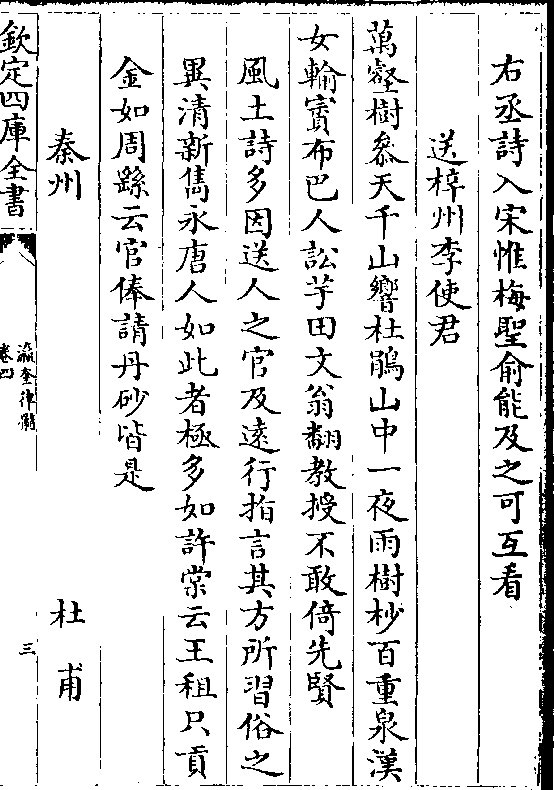 右丞詩入宋惟梅聖俞能及之可互看
送梓州李使君
萬壑樹參天千山響杜鵑山中一夜雨樹杪百重泉漢
女輸賨布巴人訟芋田文翁翻教授不敢倚先賢
風土詩多因送人之官及遠行指言其方所習俗之
異清新雋永唐人如此者極多如許棠云王租只貢
金如周繇云官俸請丹砂皆是
秦州　杜甫
欽定四庫全書
瀛奎律髓
卷四
三